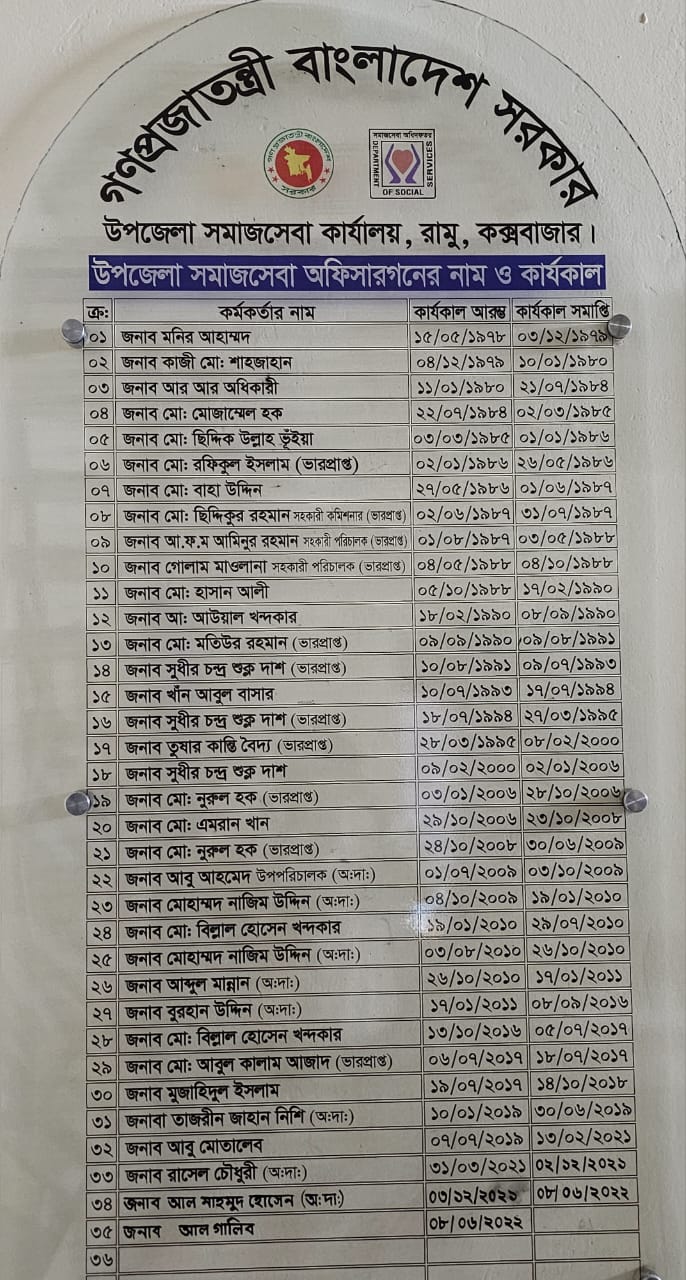 গণপ্রজাতন্ত্রী বাংলাদেশ সরকার
গণপ্রজাতন্ত্রী বাংলাদেশ
সরকার
সমাজসেবা অধিদফতর
DEPARTMENT
OF SOCIAL
SERVICES
উপজেলা সমাজসেবা কার্যালয়, রামু, কক্সবাজার।
উপজেলা সমাজসেবা অফিসারগনের নাম ও কার্যকাল
ক্র: কর্মকর্তার নাম কার্যকাল আরম্ভ কার্যকাল সমাপ্তি
০১ জনাব মনির আহাম্মদ ১৫/০৫/১৯৭৮ ০৩/১২/১৯৭৯
০২ জনাব কাজী মো: শাহজাহান ০৪/১২/১৯৭৯ ১০/০১/১৯৮০
০৩ জনাব আর আর অধিকারী ১১/০১/১৯৮০ ২১/০৭/১৯৮৪
০৪ জনাব মো: মোজাম্মেল হক ২২/০৭/১৯৮৪ ০২/০৩/১৯৮৫
০৫ জনাব মো: ছিদ্দিক উল্লাহ ভূঁইয়া ০৩/০৩/১৯৮৫ ০১/০১/১৯৮৬
০৬ জনাব মো: রফিকুল ইসলাম (ভারপ্রাপ্ত) ০২/০১/১৯৮৬ ২৬/০৫/১৯৮৬
০৭ জনাব মো: বাহা উদ্দিন ২৭/০৫/১৯৮৬ ০১/০৬/১৯৮৭
০৮ জনাব মো: ছিদ্দিকুর রহমান সহকারী কমিশনার (ভারপ্রাপ্ত) ০২/০৬/১৯৮৭ ৩১/০৭/১৯৮৭
০৯ জনাব আ.ফ.ম আমিনুর রহমান সহকারী পরিচালক (ভারপ্রাপ্ত) ০১/০৮/১৯৮৭ ০৩/০৫/১৯৮৮
১০ জনাব গোলাম মাওলানা সহকারী পরিচালক (ভারপ্রাপ্ত) ০৪/০৫/১৯৮৮ ০৪/১০/১৯৮৮
১১ জনাব মো: হাসান আলী ০৫/১০/১৯৮৮ ১৭/০২/১৯৯০
১২ জনাব আ: আউয়াল খন্দকার ১৮/০২/১৯৯০ ০৮/০৯/১৯৯০
১৩ জনাব মো: মতিউর রহমান (ভারপ্রাপ্ত) ০৯/০৯/১৯৯০ ০৯/০৮/১৯৯১
১৪ জনাব সুধীর চন্দ্র শুক্ল দাশ (ভারপ্রাপ্ত) ১০/০৮/১৯৯১ ০৯/০৭/১৯৯৩
১৫ জনাব খাঁন আবুল বাসার ১০/০৭/১৯৯৩ ১৭/০৭/১৯৯৪
১৬ জনাব সুধীর চন্দ্র শুক্ল দাশ (ভারপ্রাপ্ত) ১৮/০৭/১৯৯৪ ২৭/০৩/১৯৯৫
১৭ জনাব তুষার কান্তি বৈদ্য (ভারপ্রাপ্ত) ২৮/০৩/১৯৯৫ ০৮/০২/২০০০
১৮ জনাব সুধীর চন্দ্র শুক্ল দাশ ০৯/০২/২০০০ ০২/০১/২০০৬
১৯ জনাব মো: নুরুল হক (ভারপ্রাপ্ত) ০৩/০১/২০০৬ ২৮/১০/২০০৬
২০ জনাব মো: এমরান খান ২৯/১০/২০০৬ ২৩/১০/২০০৮
২১ জনাব মো: নুরুল হক (ভারপ্রাপ্ত) ২৪/১০/২০০৮ ৩০/০৬/২০০৯
২২ জনাব আবু আহমেদ উপপরিচালক (অ:দা:) ০১/০৭/২০০৯ ০৩/১০/২০০৯
২৩ জনাব মোহাম্মদ নাজিম উদ্দিন (অ:দা:) ০৪/১০/২০০৯ ১৯/০১/২০১০
২৪ জনাব মো: বিল্লাল হোসেন খন্দকার ১৯/০১/২০১০ ২৯/০৭/২০১০
২৫ জনাব মোহাম্মদ নাজিম উদ্দিন (অ:দা:) ০৩/০৮/২০১০ ২৬/১০/২০১০
২৬ জনাব আব্দুল মান্নান (অ:দা:) ২৬/১০/২০১০ ১৭/০১/২০১১
২৭ জনাব বুরহান উদ্দিন (অ:দা:) ১৭/০১/২০১১ ০৮/০৯/২০১৬
২৮ জনাব মো: বিল্লাল হোসেন খন্দকার ১৩/১০/২০১৬ ০৫/০৭/২০১৭
২৯ জনাব মো: আবুল কালাম আজাদ (ভারপ্রাপ্ত) ০৬/০৭/২০১৭ ১৮/০৭/২০১৭
৩০ জনাব মুজাহিদুল ইসলাম ১৯/০৭/২০১৭ ১৪/১০/২০১৮
৩১ জনাবা তাজরীন জাহান নিশি (অ:দা:) ১০/০১/২০১৯ ৩০/০৬/২০১৯
৩২ জনাব আবু মোতালেব ০৭/০৭/২০১৯ ১৩/০২/২০২১
৩৩ জনাব রাসেল চৌধুরী (অ:দা:) ৩১/০৩/২০২১ ০২/১২/২০২১
৩৪ জনাব আল মাহমুদ হোসেন (অ:দা:) ০৩/১২/২০২১ ০৮/০৬/২০২২
৩৫ জনাব আল গালিব ০৮/০৬/২০২২
৩৬